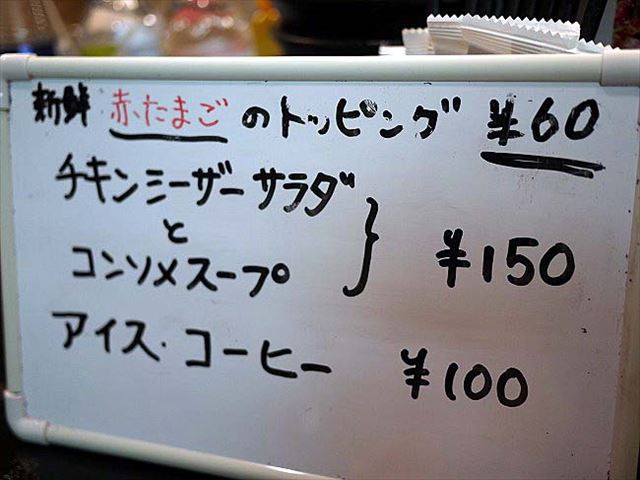 新鮮 赤たまごのトッピング ¥60
チキンミーザーサラダ
と
コンソメスープ } ¥150
アイス・コーヒー ¥100